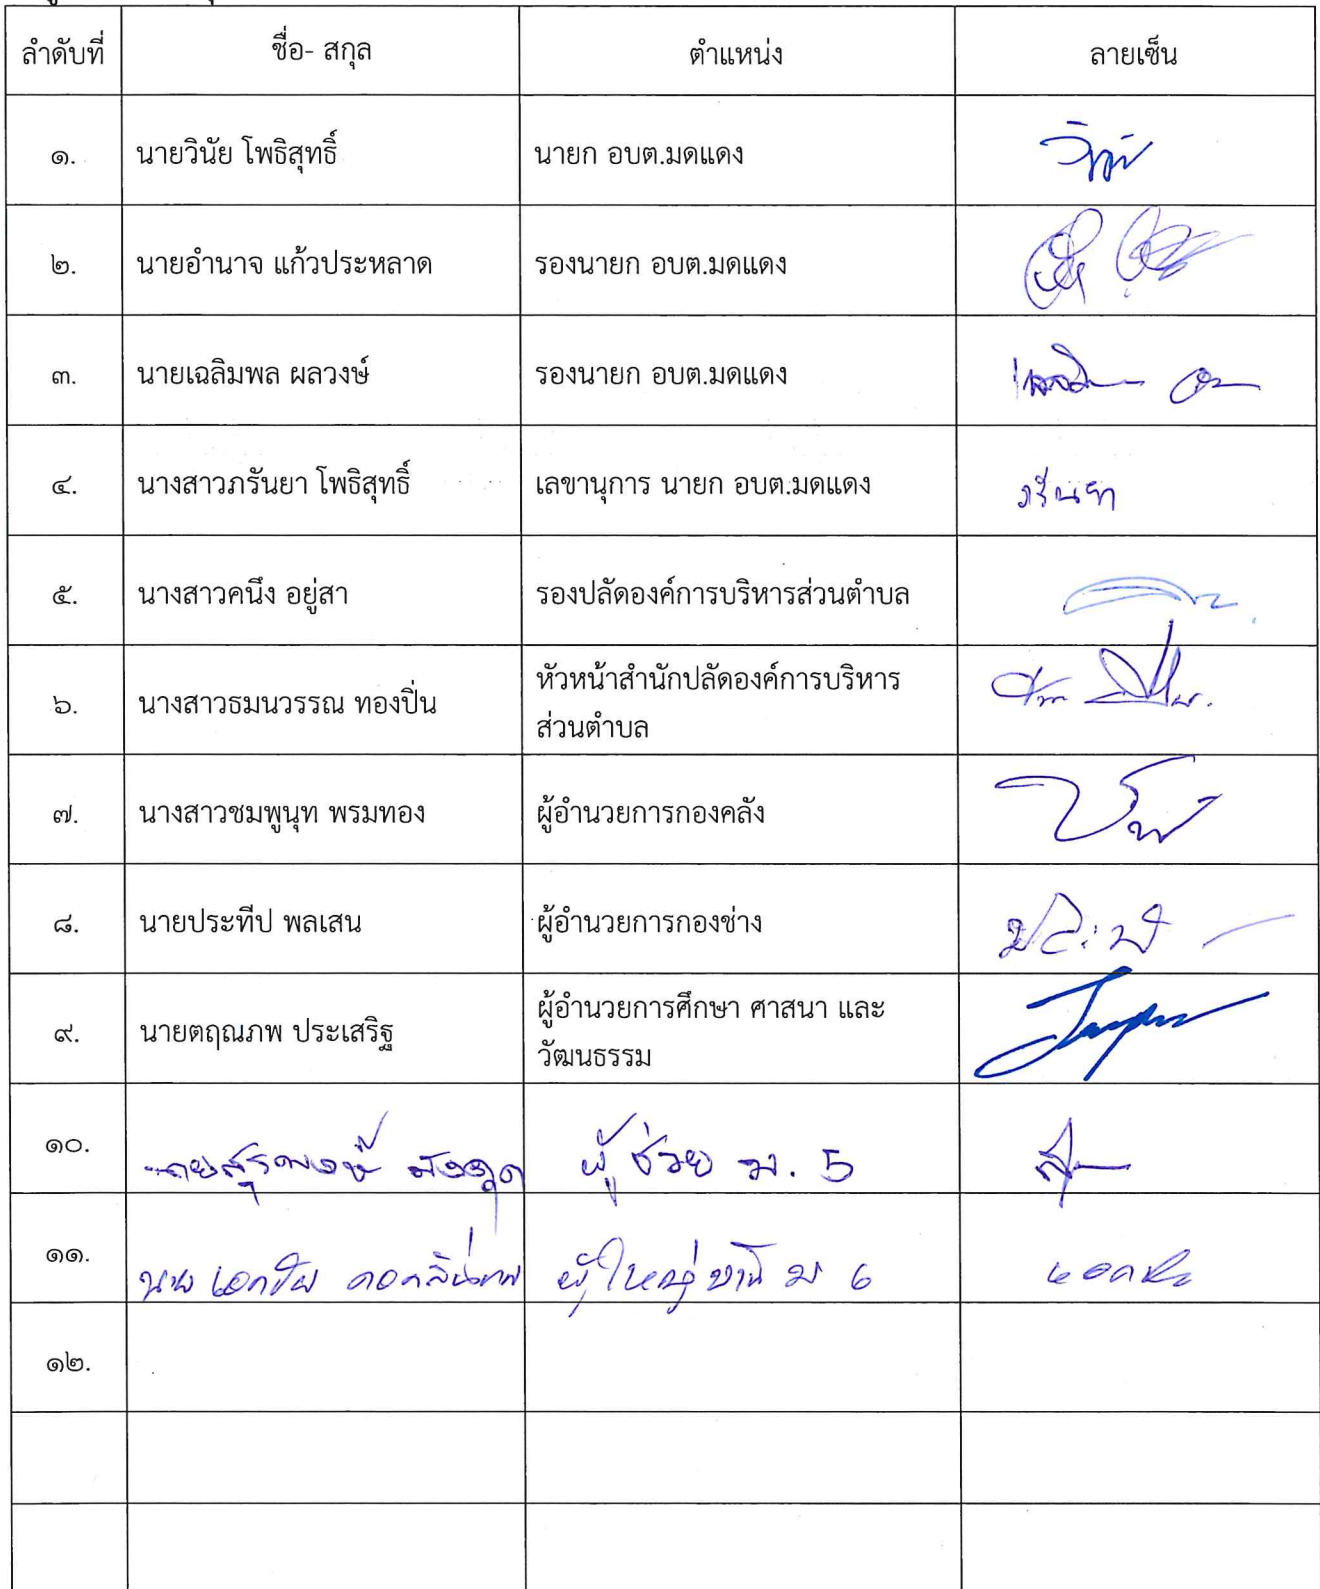 ลำดับที่ ชื่อ- สกุล ตำแหน่ง ลายเซ็น
๑. นายวินัย โพธิสุทธิ์ นายก อบต.มดแดง
๒. นายอำนาจ แก้วประหลาด รองนายก อบต.มดแดง
๓. นายเฉลิมพล ผลวงษ์ รองนายก อบต.มดแดง
๔. นางสาวภรันยา โพธิสุทธิ์ เลขานุการ นายก อบต.มดแดง ภรันยา
๕. นางสาวคนึง อยู่สา รองปลัดองค์การบริหารส่วนตำบล
๖. นางสาวธมนวรรณ ทองปิ่น หัวหน้าสำนักปลัดองค์การบริหาร
ส่วนตำบล
๗. นางสาวชมพูนุท พรมทอง ผู้อำนวยการกองคลัง
๘. นายประทีป พลเสน ผู้อำนวยการกองช่าง
๙. นายตฤณภพ ประเสริฐ ผู้อำนวยการศึกษา ศาสนา และ
วัฒนธรรม
๑๐. ผู้ช่วย ม. 5
๑๑. นาย เอกชัย ผู้ใหญ่บ้าน ม 6 เอกชัย
๑๒.